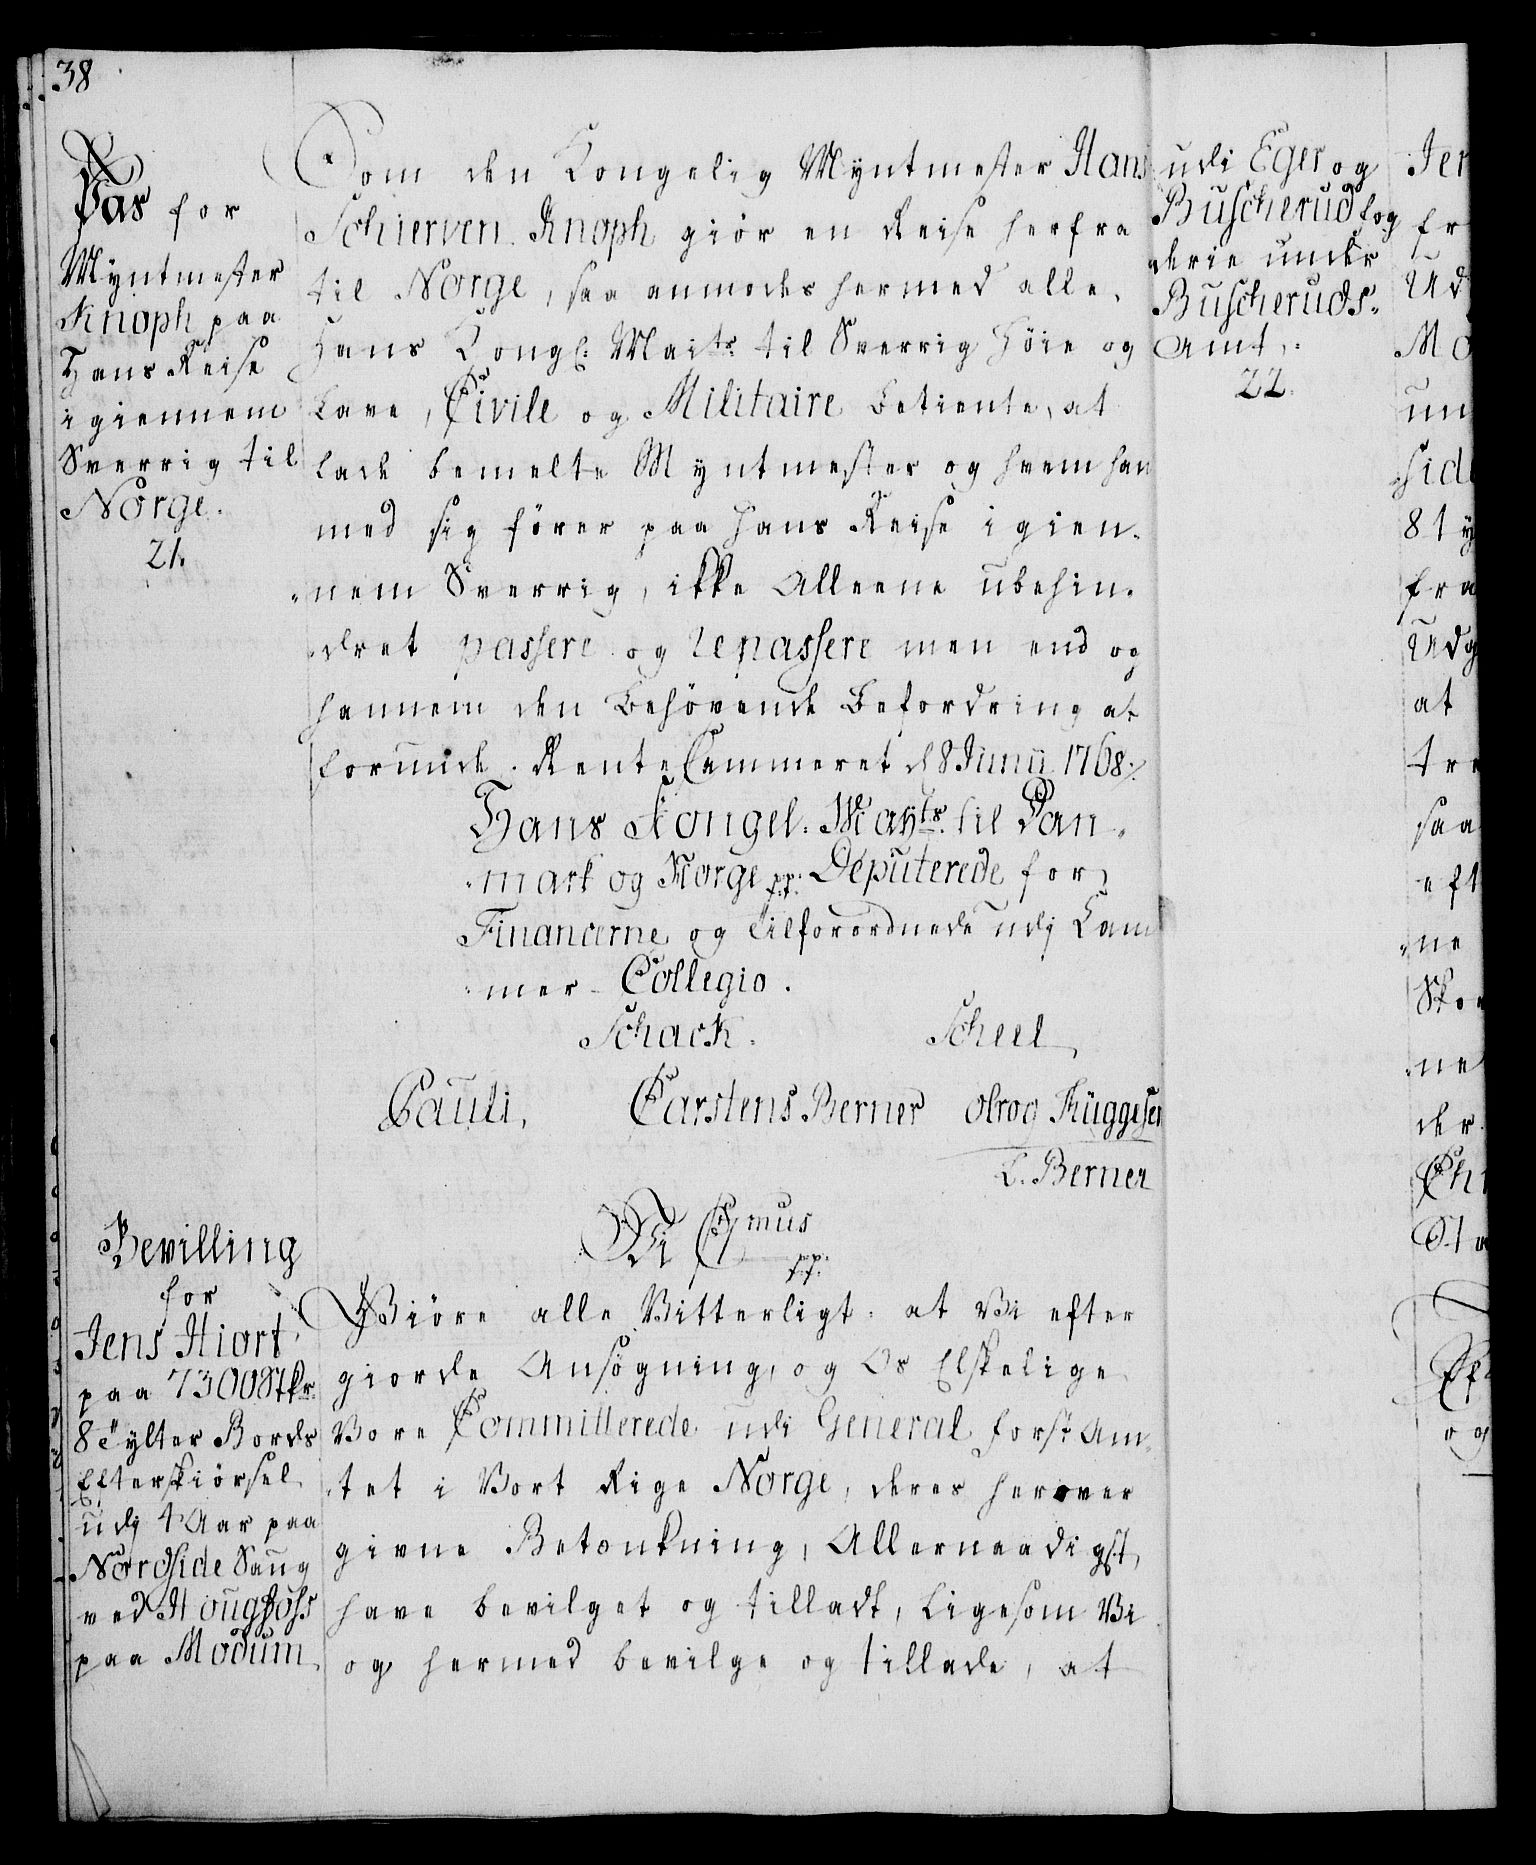 38
Pas for
Myntmester
Knoph paa
Hans Reise
igiennem
Sverrig til
Norge.
21.
Som den Kongelig Myntmester Hans
Schierven Knoph giör en Reise herfra
til Norge, saa anmodes hermed alle
Hans Kongl: Maits til Sverrig Höie og
Lave, Civile og Militaire Betiente, at
lade bemelte Myntmester og hvem han
med sig förer paa Hans Reise igien-
nem Sverrig, ikke Alleene ubehin-
dret passere og repassere men end og
hannem den Behövende Befordring at
forunde. Rente Cammeret d 8 Junii 1768.
Hans Kongel. Mayts til Dan-
mark og Norge pp. Deputerede for
Financerne og Tilforordnede udj Cam
mer-Collegio.
Schack. Scheel
Pauli, Carstens Berner Olrog Thüggesen
C. Berner
Bevilling
for
Jens Hiort
paa 7300 Stkr
8 Tylter Bords
Efterskiörsel
udj 4 Aar paa
Nordside Saug
ved Hougfoss
paa Modum
Vi C 7mus
pp.
Giöre alle Vitterligt: at Vi efter
giorde Ansögning, og Os Elskelige
Vore Committerede udi General Forst Am-
tet i Vort Rige Norge, deres herover
givne Betænkning, Allernaadigst
have bevilget og tilladt, Ligesom Vi
og hermed bevilge og tillade, at
udi Eger og
Buscherud fog
derie under
Buscheruds-
Amt.
22.
Jen
fr
Ud
Mo
un
side
8 ty
fra
Udg
at
tre
saa
eft
ne
Skov
ne
der
Chr
Sta
og